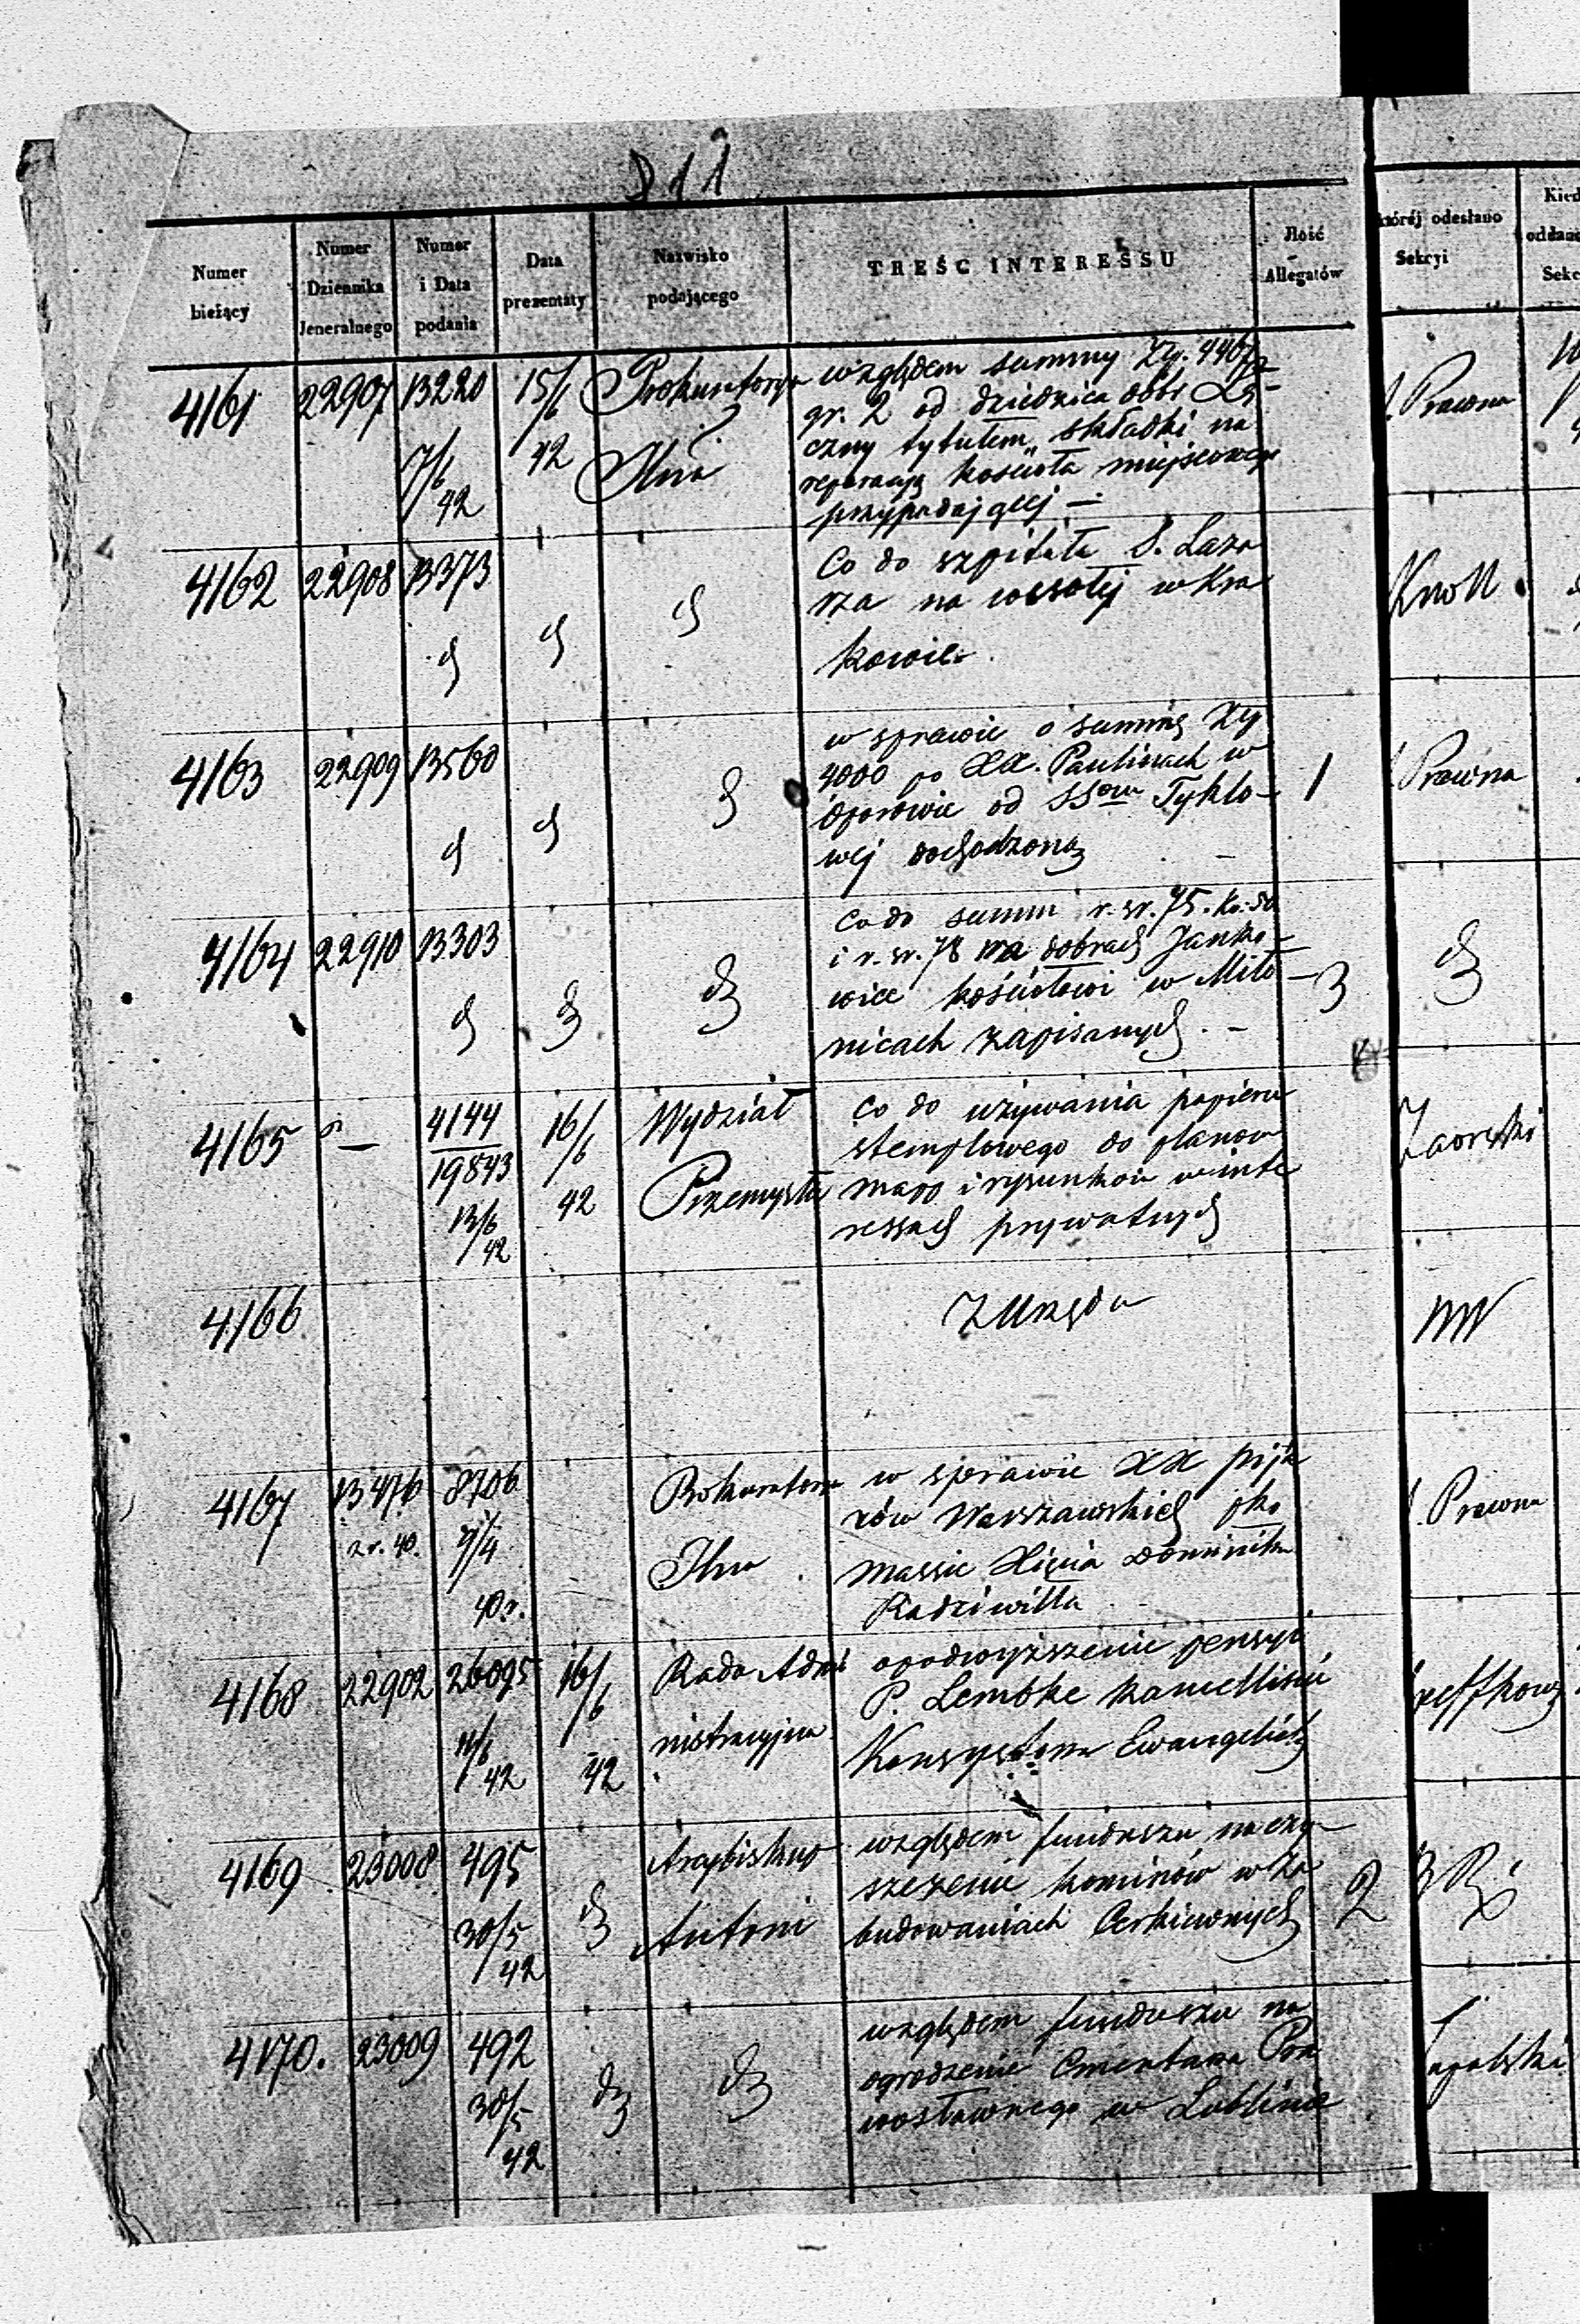 D 11
Numer bieżący
Numer Dziennika Jeneralnego
Numer i Data podania
Data prezentaty
Nazwisko podającego
TREŚC INTERESSU
Jlość Allegatów
której odesłano Sekcyi
4161 22907 13220 7/6 42 15/6 42 Prokuratorya
względem summy Złp.
gr. 2 od dziedzica dóbr Łą-
czny tytułem składki na
reparacyą kościoła miejscowego
przypadającej —
Prawna
4162 22908 13373 d d d
Co do szpitala S. Laza
rza na wesołej w Kra
kowie.
Knoll
4163 22909 13560 d d d
w sprawie o summę Złp
4000 po XX. Paulinach w
Oporowie od SSów Tyklo-
wej dochodzoną —
1
Prawna
4164 22910 13303 d d d
Co do summ r. sr. 75. ko. 50
i r. sr. 78 na dobrach Janko-
wice kościołowi w Miło-
nicach zapisanych. —
3
d
4165 — 4144 / 19843 13/6 42 16/6 42 Wydział Przemysłu
Co do używania papieru
stemplowego do planow
mapp i rysunków w inte
ressach prywatnych
Zaorski
4166 Z Urzędu
4167 13476 z r. 40. 8706 7/4 40 r. Prokuratorya
w sprawie XX pija
rów Warszawskich pko
massie Xięcia Dominika
Radziwiłła
Prawna
4168 22902 26095 11/6 42 16/6 42 Rada Admi
nistracyjna
o podwyższenie pensyi
P. Lembke kancellisty
Konsystorza Ewangelick
4169 23008 495 30/5 42 d Arcybiskup
Antoni
względem funduszu na czy-
szczenie kominów w za
budowaniach Cerkiewnych
2
4170. 23009 492 30/5 42 d d
względem funduszu na
ogrodzenie Cmentarza Pra
wosławnego w Lublinie